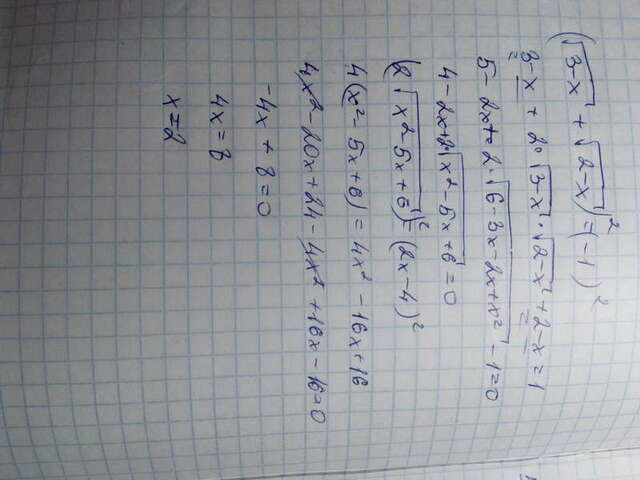 (√(3-x) + √(2-x))² = (-1)²
3-x + 2·√(3-x)·√(2-x) + 2-x = 1
5-2x+2·√(6-3x-2x+x²) -1=0
4-2x+2·√(x²-5x+6) = 0
(2√(x²-5x+6))² = (2x-4)²
4(x²-5x+6) = 4x² -16x+16
4x²-20x+24-4x²+16x-16=0
-4x+8=0
4x=8
x=2